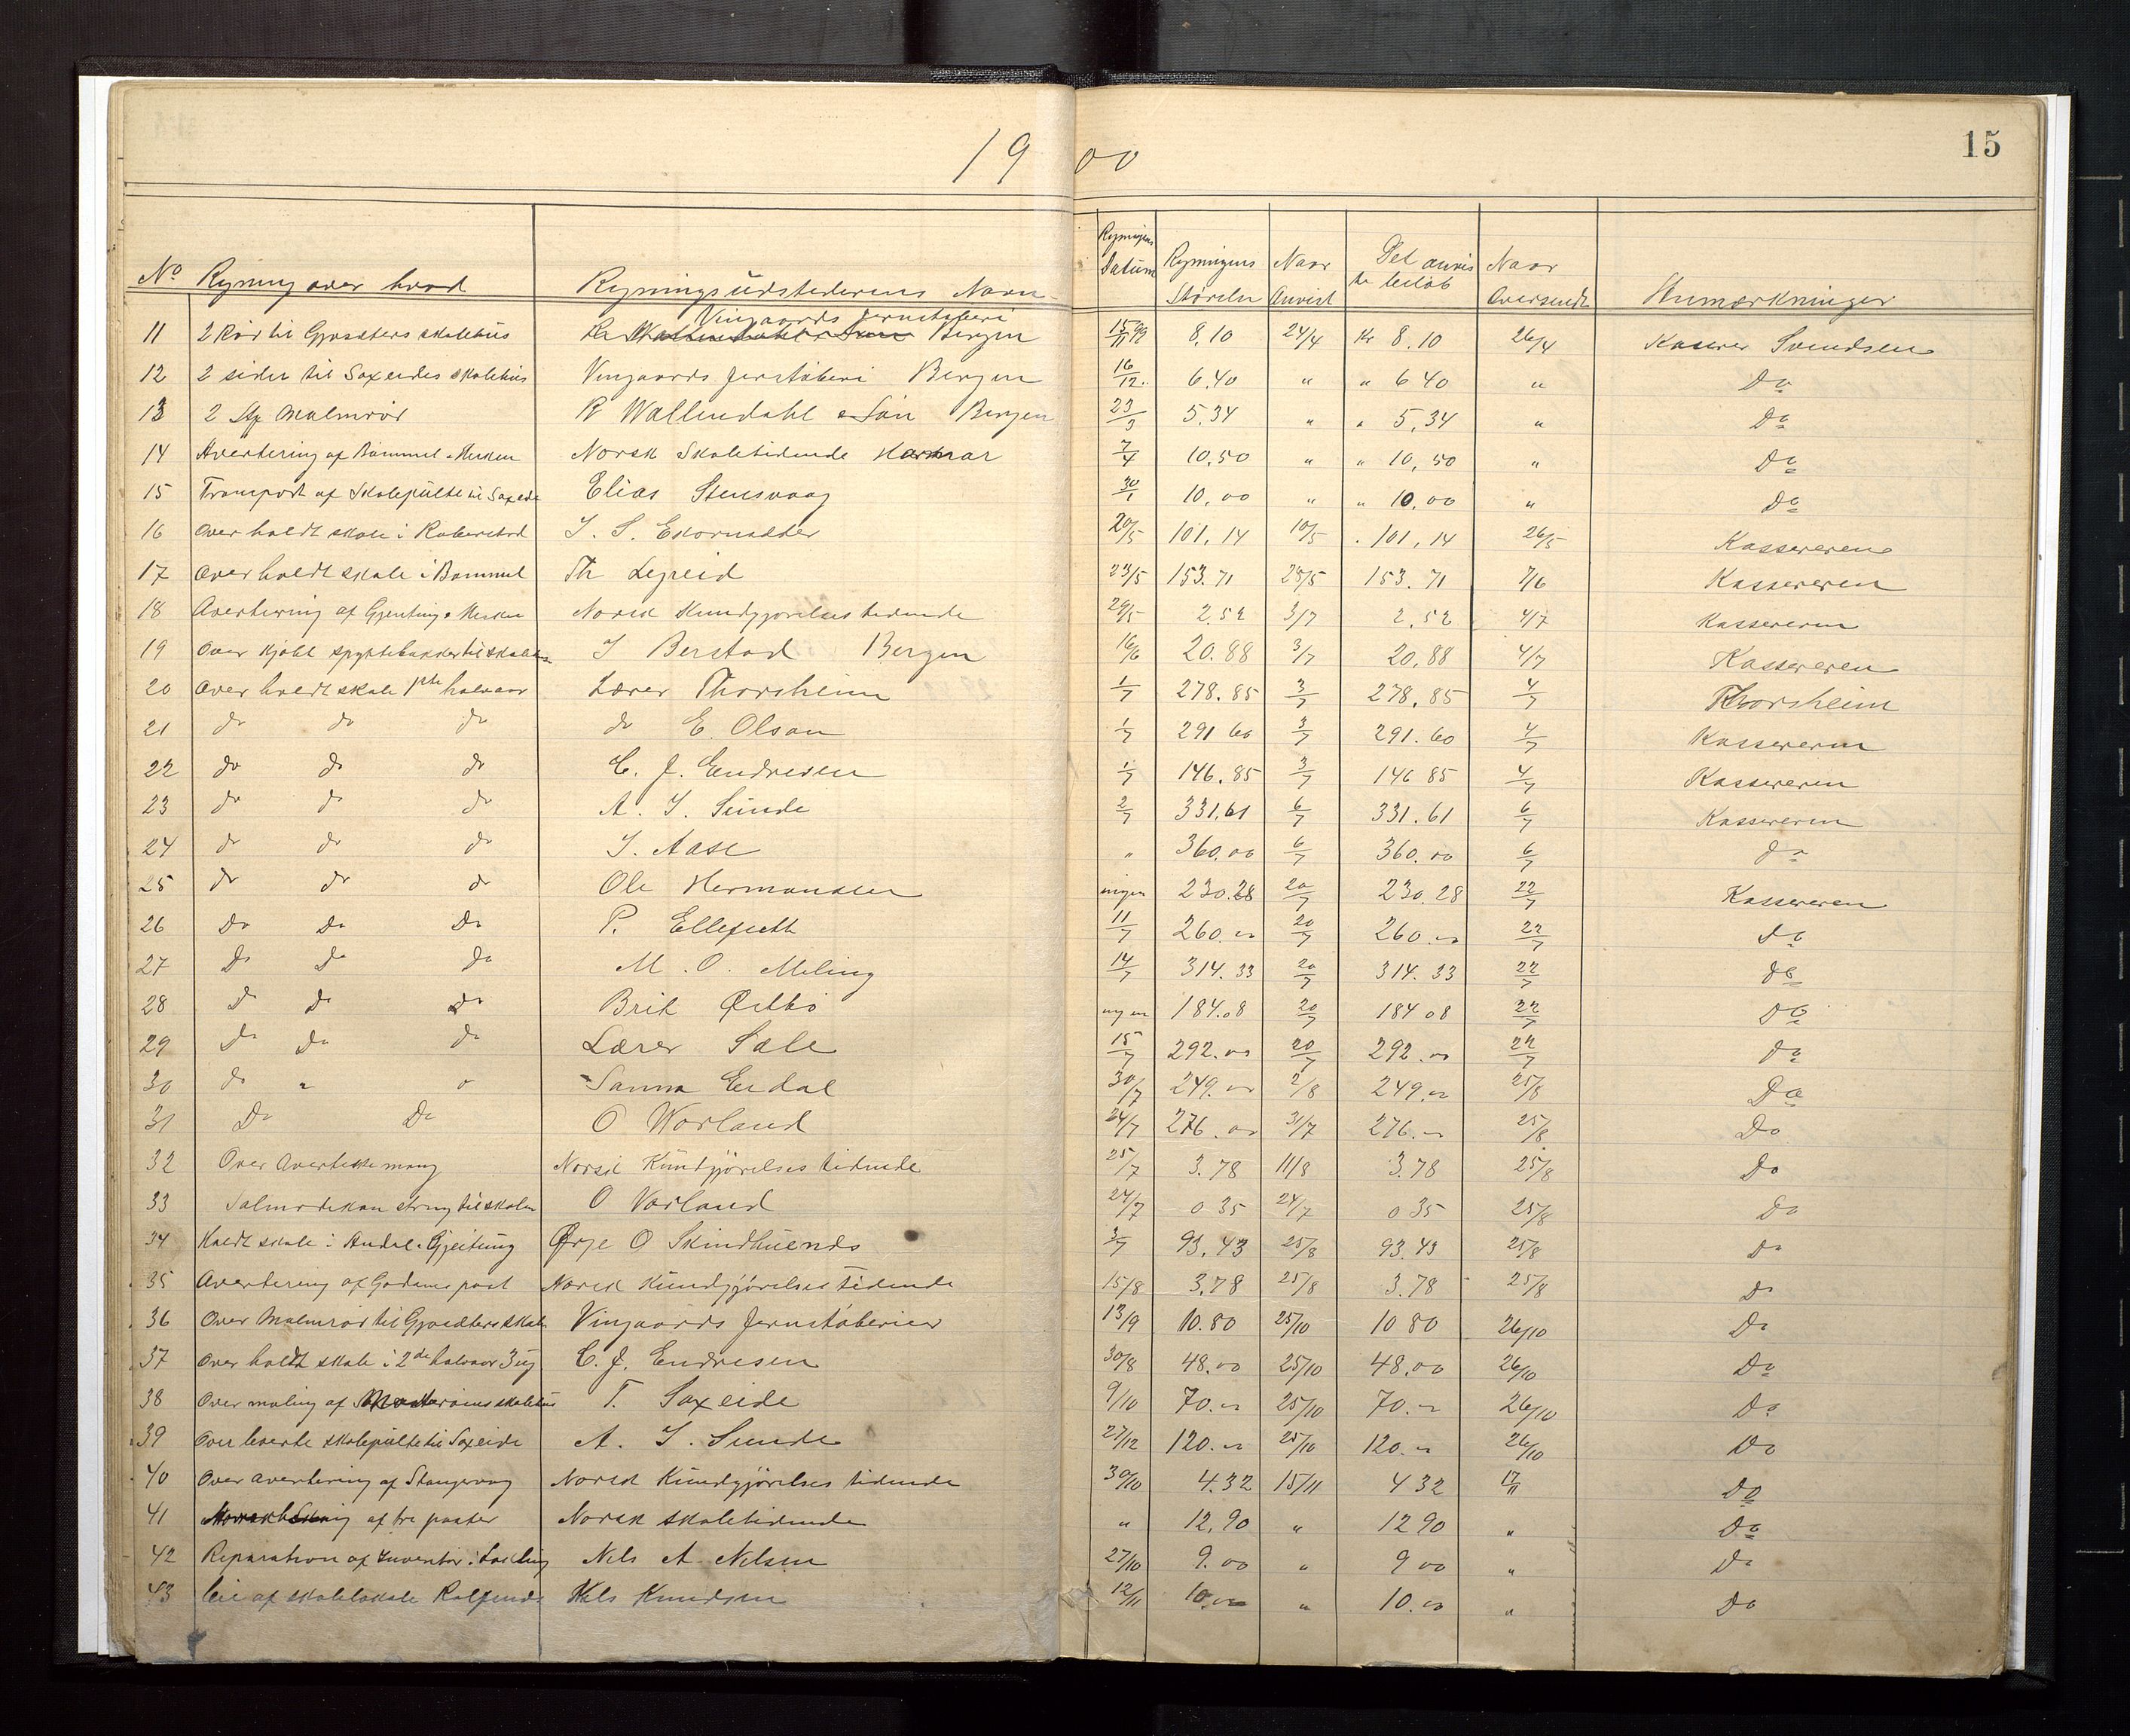 1900
15
No Regning over hvad Regningsudstederens Navn Regningens Datum Regningens Størelse Naar Anvist Det anvis te beløb Naar Oversendt Anmærkninger
Vingaards Jernstøberi
11 2 Rør til Gjosæters skolehus Bergen 15/11 99 8,10 24/4 Kr 8.10 26/4 Kaserer Svendsen
12 2 sider til Saxeides skolehus Vingaards Jernstøberi Bergen 16/12 6.40 " " 6 40 " Do
13 2 Malmrør R Wallendahl & Søn Bergen 23/3 5.34 " " 5,34 " Do
14 Avertering af Bømmel Norsk Skoletidende Hamar 7/4 10,50 " " 10,50 " Do
15 Transport af Skolepulte til Saxeide Elias Stensvaag 30/1 10,00 " " 10,00 " Do
16 Over holdt skole i J. S. 20/5 101,14 10/5 101,14 26/5 Kassereren
17 Over holdt skole i Bømmel Th Legreid 23/5 153.71 25/5 153.71 7/6 Kassereren
18 Avertering af Norsk Kundgjørelses tidende 29/5 2.52 3/7 2,52 4/7 Kassereren
19 Over kjøbt spyttebakker til skolehus J Berstad Bergen 16/6 20.88 3/7 20,88 4/7 Kassereren
20 Over holdt skole 1ste halvaar Lærer Thorsheim 1/7 278.85 3/7 278,85 4/7 Thorsheim
21 do do do do E. Olsan 1/7 291 60 3/7 291.60 4/7 Kassereren
22 do do do C. J. Endresen 1/7 146.85 3/7 146 85 4/7 Kassereren
23 do do do A. J. Sunde 2/7 331,61 6/7 331.61 6/7 Kassereren
24 do do do J. Aase " 360.00 6/7 360.00 6/7 do
25 do do do Ole Hermansen ingen 230.28 20/7 230.28 22/7 Kassereren
26 Do Do Do P. 11/7 260.00 20/7 260.00 22/7 do
27 Do Do Do M. O. Meling 14/7 314.33 20/7 314.33 22/7 do
28 Do Do Do Brit Østbø ingen 184.08 20/7 184 08 22/7 Do
29 Do Do Do Lærer Sæle 15/7 292.00 20/7 292.00 22/7 do
30 do " o Sanna Eidal 30/7 249.00 2/8 249.00 25/8 Do
31 Do Do O Worland 24/7 276.00 31/7 276.00 25/8 Do
32 Over Norsk Kundgjørelses tidende 25/7 3.78 11/8 3.78 25/8 Do
33 Salmodikon streng til skolen O Vorland 24/7 0 35 24/7 0 35 25/8 Do
34 Holdt skole i Andal Ørje O 3/7 93,43 25/8 93.43 25/8 Do
35 Avertering af post Norsk Kundgjørelses tidende 15/8 3,78 25/8 3.78 25/8 Do
36 Over Malmrør til Gjosæters skole Vingaards Jernstøberier 13/9 10.80 25/10 10 80 26/10 Do
37 Over holdt skole i 2de halvaar 3 ug C. J. Endresen 30/8 48.00 25/10 48.00 26/10 Do
38 Over maling af skolehus T. Saxeide 9/10 70.00 25/10 70.00 26/10 Do
39 Over leverte skolepulte til Saxeide A. J. Sunde 27/12 120.00 25/10 120.00 26/10 Do
40 Over avertering af Stangervag Norsk Kundgjørelses tidende 30/10 4.32 15/11 4 32 17/11 Do
41 af tre poster Norsk skoletidende " 12,90 " 12 90 " Do
42 Reparation af Inventar i Nils A. Nilsen 27/10 9.00 " 9 00 " Do
43 leie af skolelokale Nils Knudsen 12/11 10.00 " 10.00 " Do